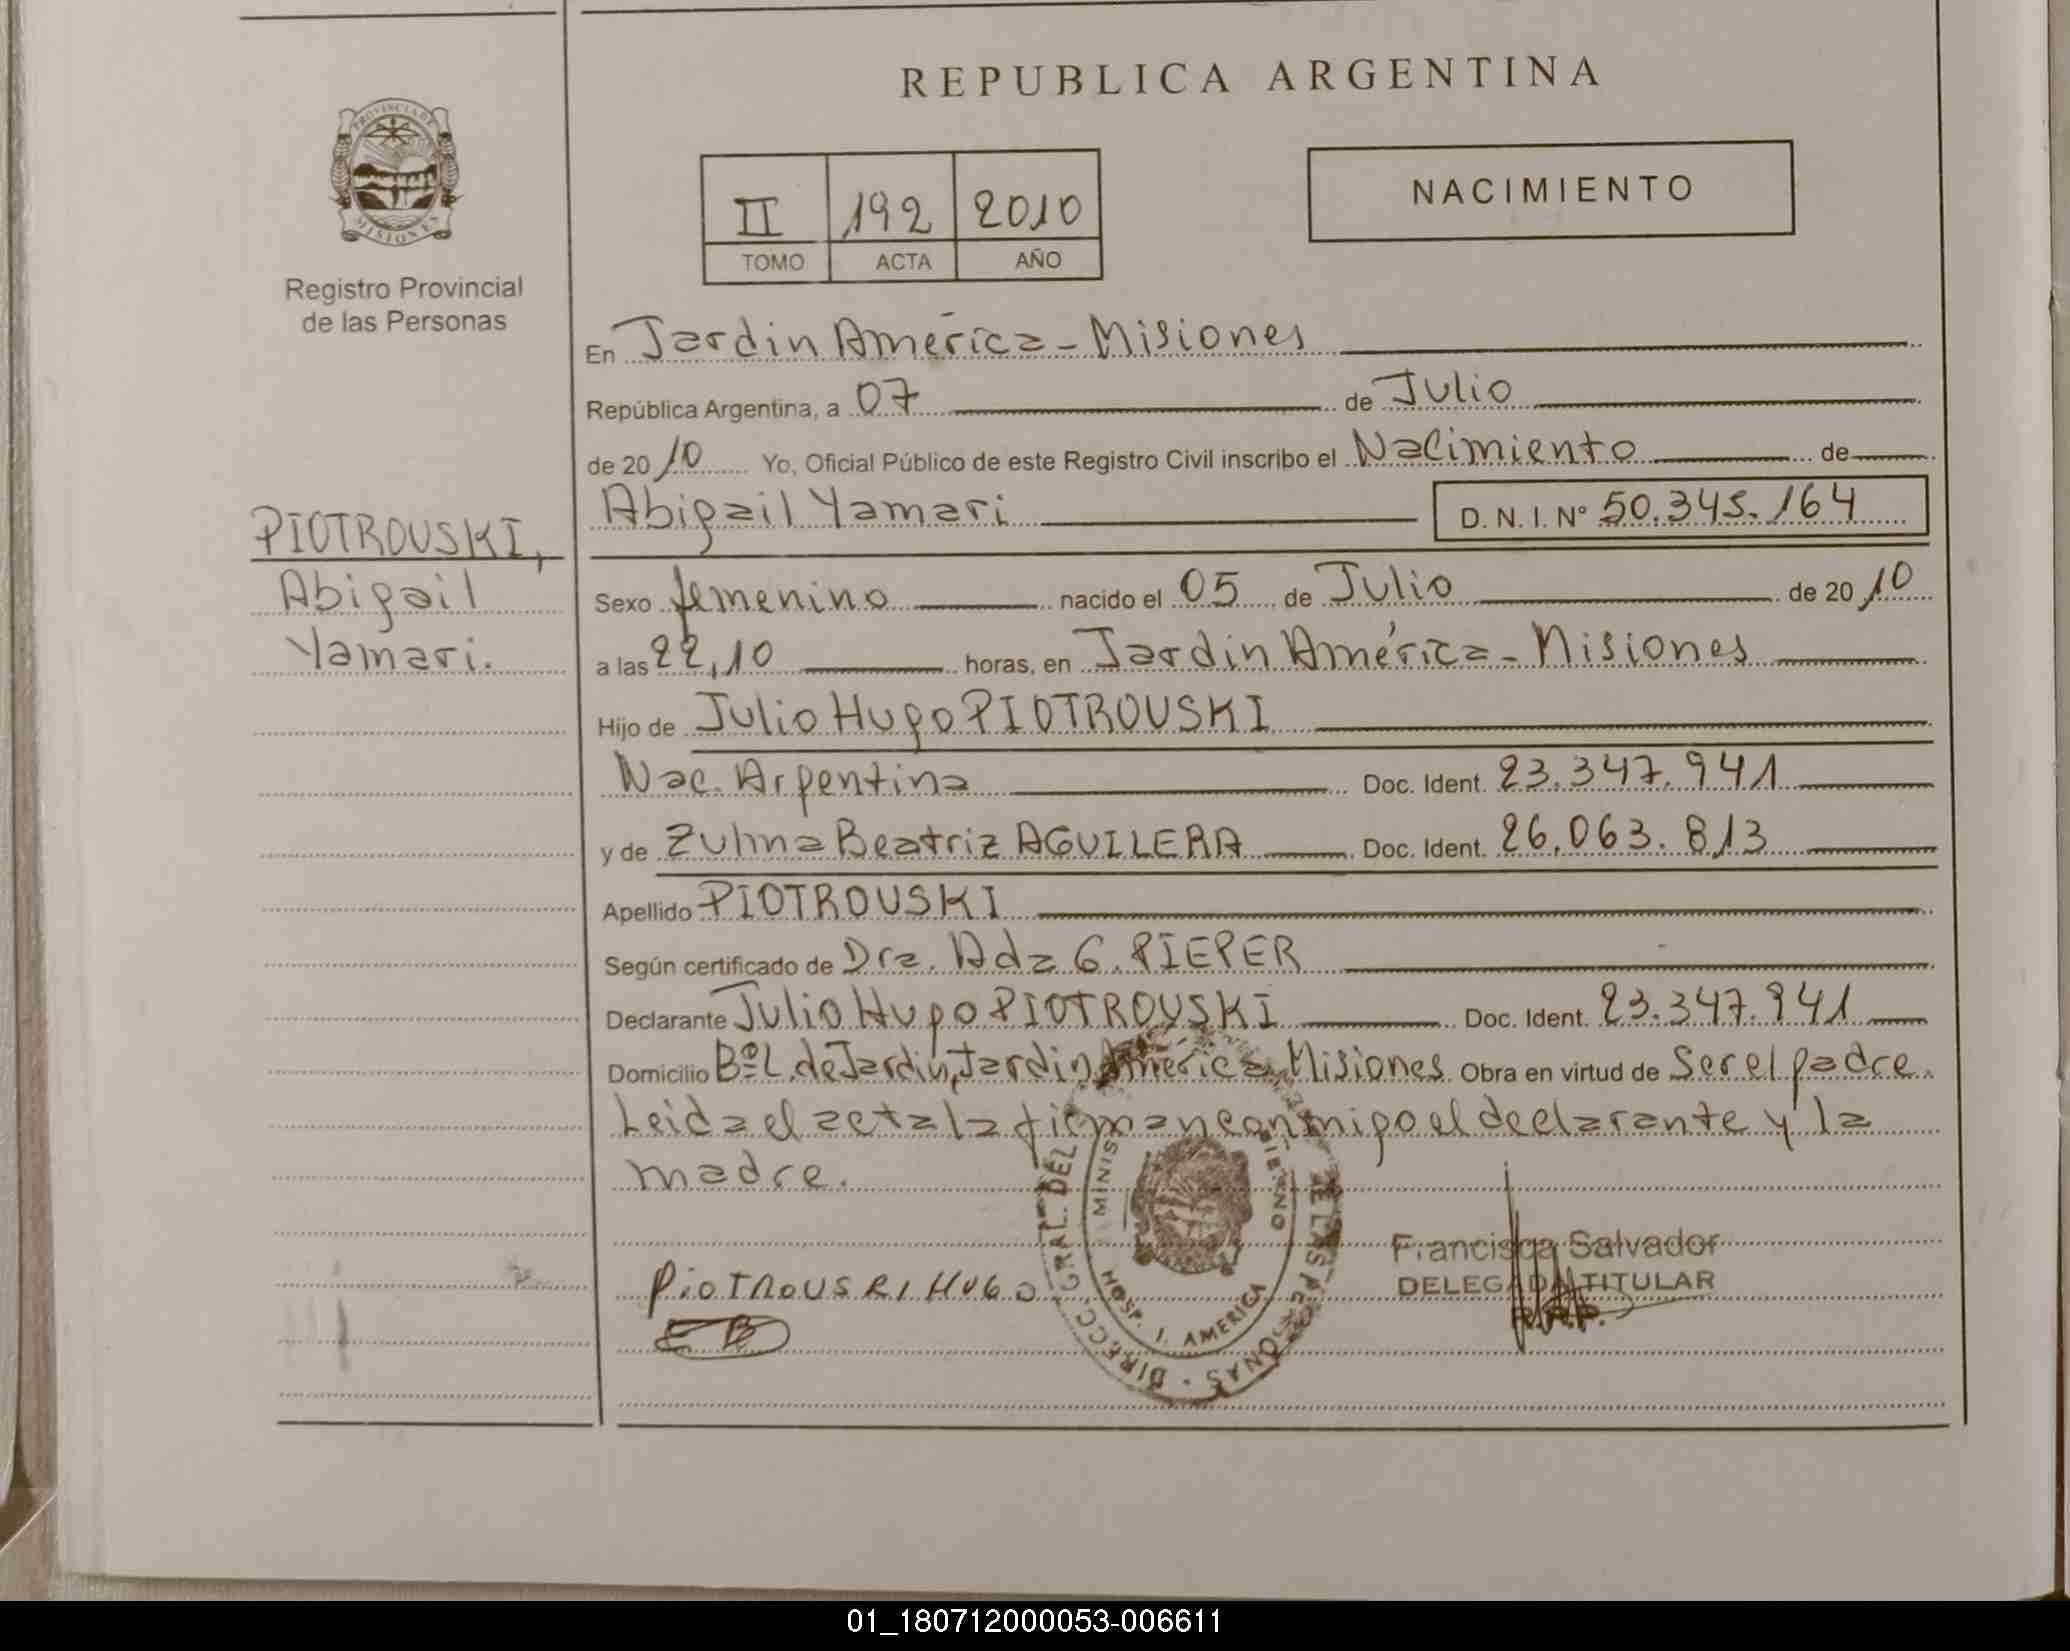 REPUBLICA ARGENTINA
PROVINCIA DE
MISIONES
Registro Provincial
de las Personas
II 192 2010
TOMO ACTA AÑO
NACIMIENTO
En Jardin América - Misiones
República Argentina, a 07 de Julio
de 2010 Yo, Oficial Público de este Registro Civil inscribo el Nacimiento de
Abigail Yamari D. N. I. N° 50.345.164
PIOTROUSKI,
Abigail
Yamari.
Sexo femenino nacido el 05 de Julio de 2010
a las 22,10 horas, en Jardin América - Misiones
Hijo de Julio Hugo PIOTROUSKI
Nac. Argentina Doc. Ident. 23.347.941
y de Zulma Beatriz AGUILERA Doc. Ident. 26.063.813
Apellido PIOTROUSKI
Según certificado de Dra. Ada G. PIEPER
Declarante Julio Hugo PIOTROUSKI Doc. Ident. 23.347.941
Domicilio Bº L. de Jardin, Jardin América, Misiones Obra en virtud de Ser el padre.
Leida el acta la firman conmigo el declarante y la
madre.
DIRECC. GRAL. DEL DE LAS PERSONAS
MINIS
HOSP. J. AMERICA
Francisca Salvador
DELEGADA TITULAR
R.P.P.
PiOTROUSKI HUGO
01_180712000053-006611